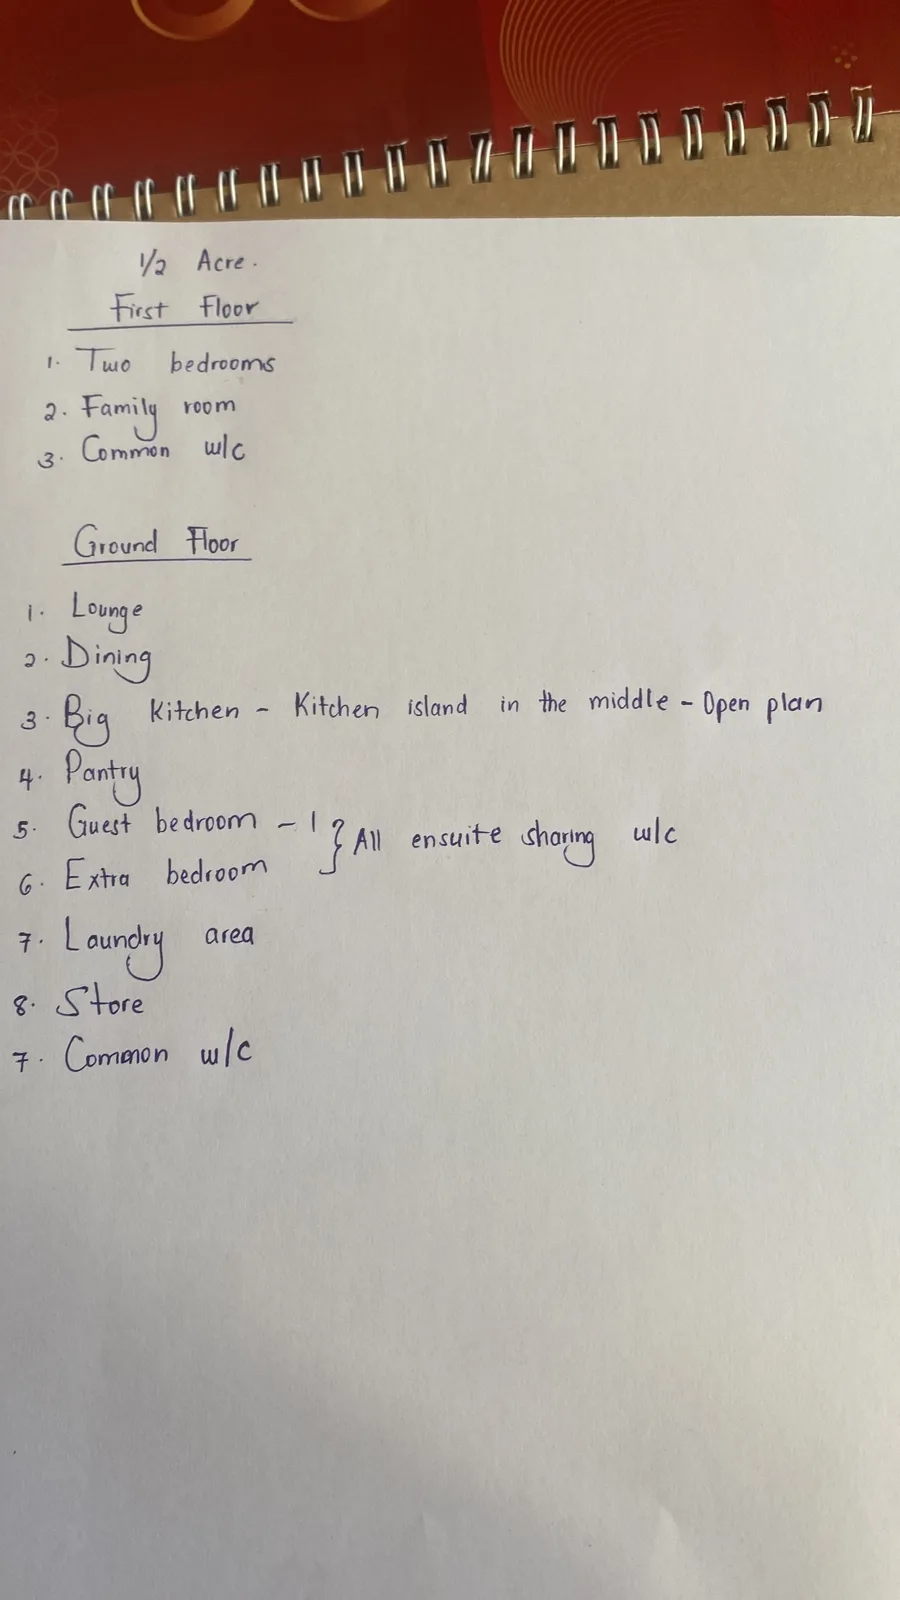 1/2 Acre.
First Floor
1. Two bedrooms
2. Family room
3. Common w/c
Ground Floor
1. Lounge
2. Dining
3. Big Kitchen - Kitchen island in the middle - Open plan
4. Pantry
5. Guest bedroom - 1 } All ensuite sharing w/c
6. Extra bedroom
7. Laundry area
8. Store
7. Common w/c